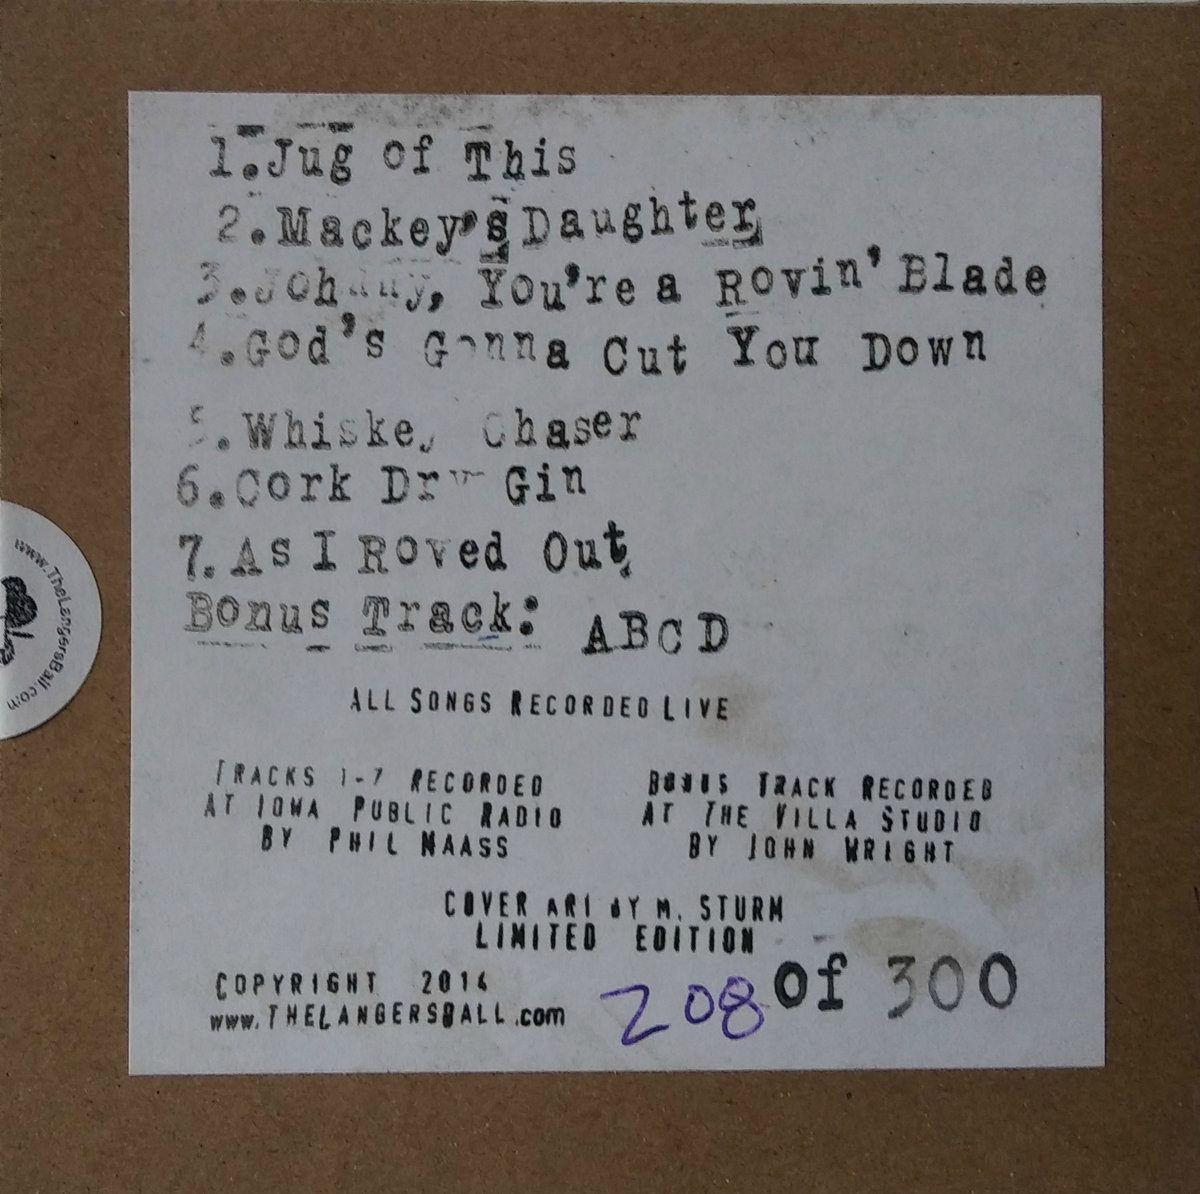 1. Jug of This
2. Mackey's Daughter
3. Johnny, You're a Rovin' Blade
4. God's Gonna Cut You Down
5. Whiskey Chaser
6. Cork Dry Gin
7. As I Roved Out
Bonus Track: ABCD
ALL SONGS RECORDED LIVE
TRACKS 1-7 RECORDED
AT IOWA PUBLIC RADIO
BY PHIL MAASS
BONUS TRACK RECORDED
AT THE VILLA STUDIO
BY JOHN WRIGHT
COVER ART BY M. STURM
LIMITED EDITION
208 of 300
COPYRIGHT 2014
www.THELANGERSBALL.com
www.TheLangersBall.com